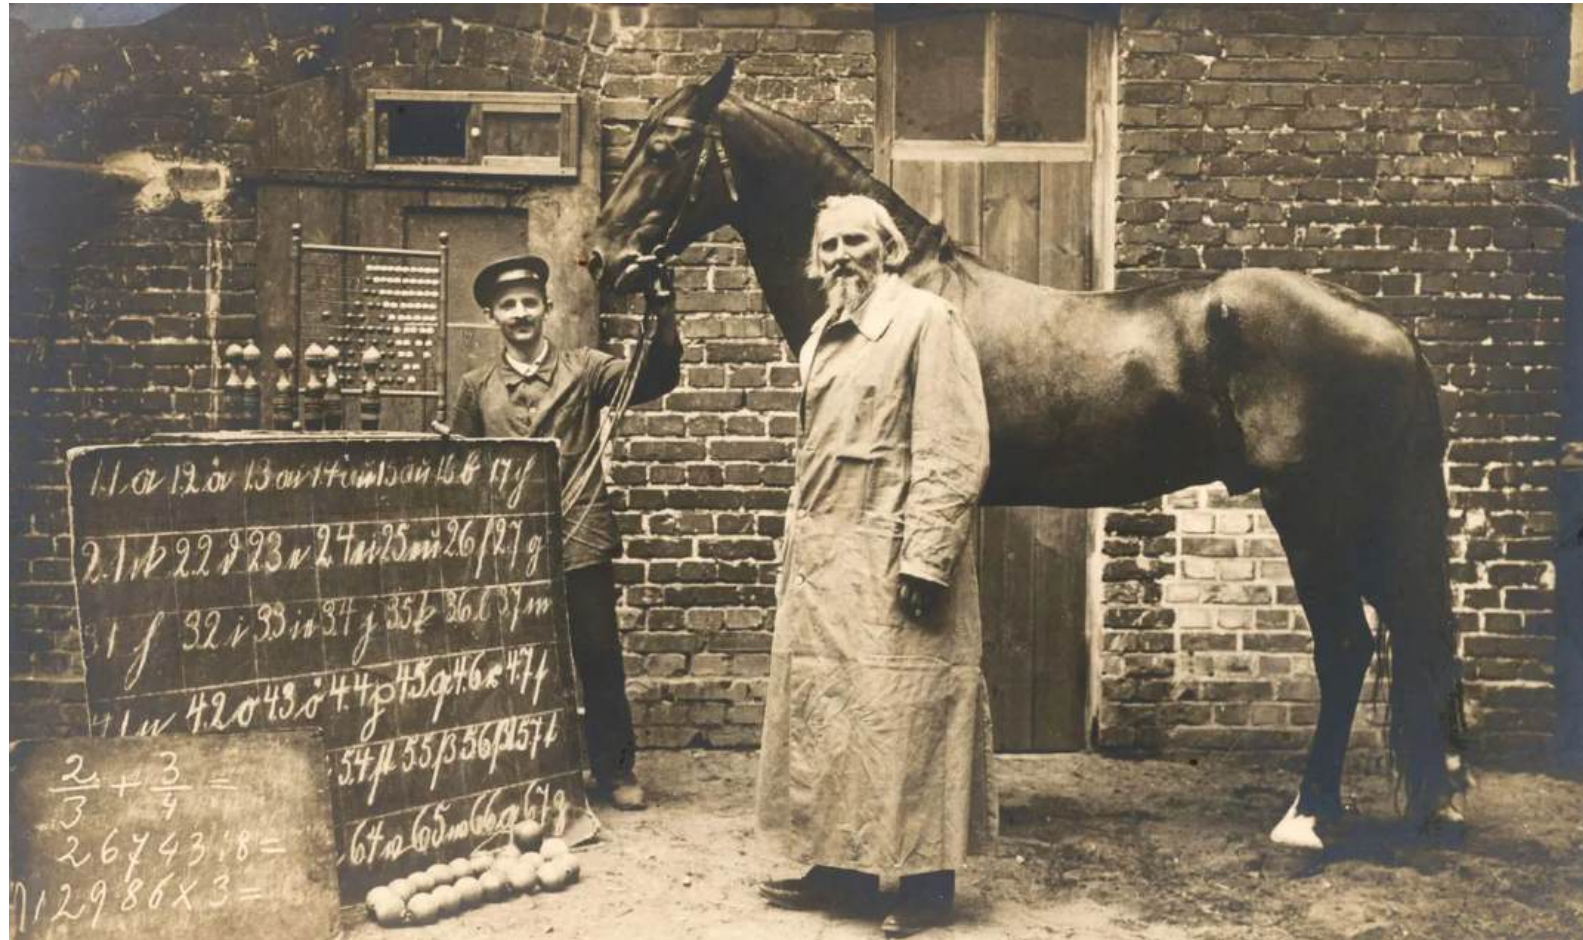 11 a 12 ä 13 ai 14 äu 15 au 16 b 17 ch
21 ck 22 d 23 e 24 ei 25 eu 26 f 27 g
31 h 32 i 33 ie 34 j 35 k 36 l 37 m
41 n 42 o 43 ö 44 p 45 q 46 r 47 s
54 st 55 ß 56 57 t
64 65 w 66 67 z
2/3 + 3/4 =
26743 : 8 =
12986 x 3 =